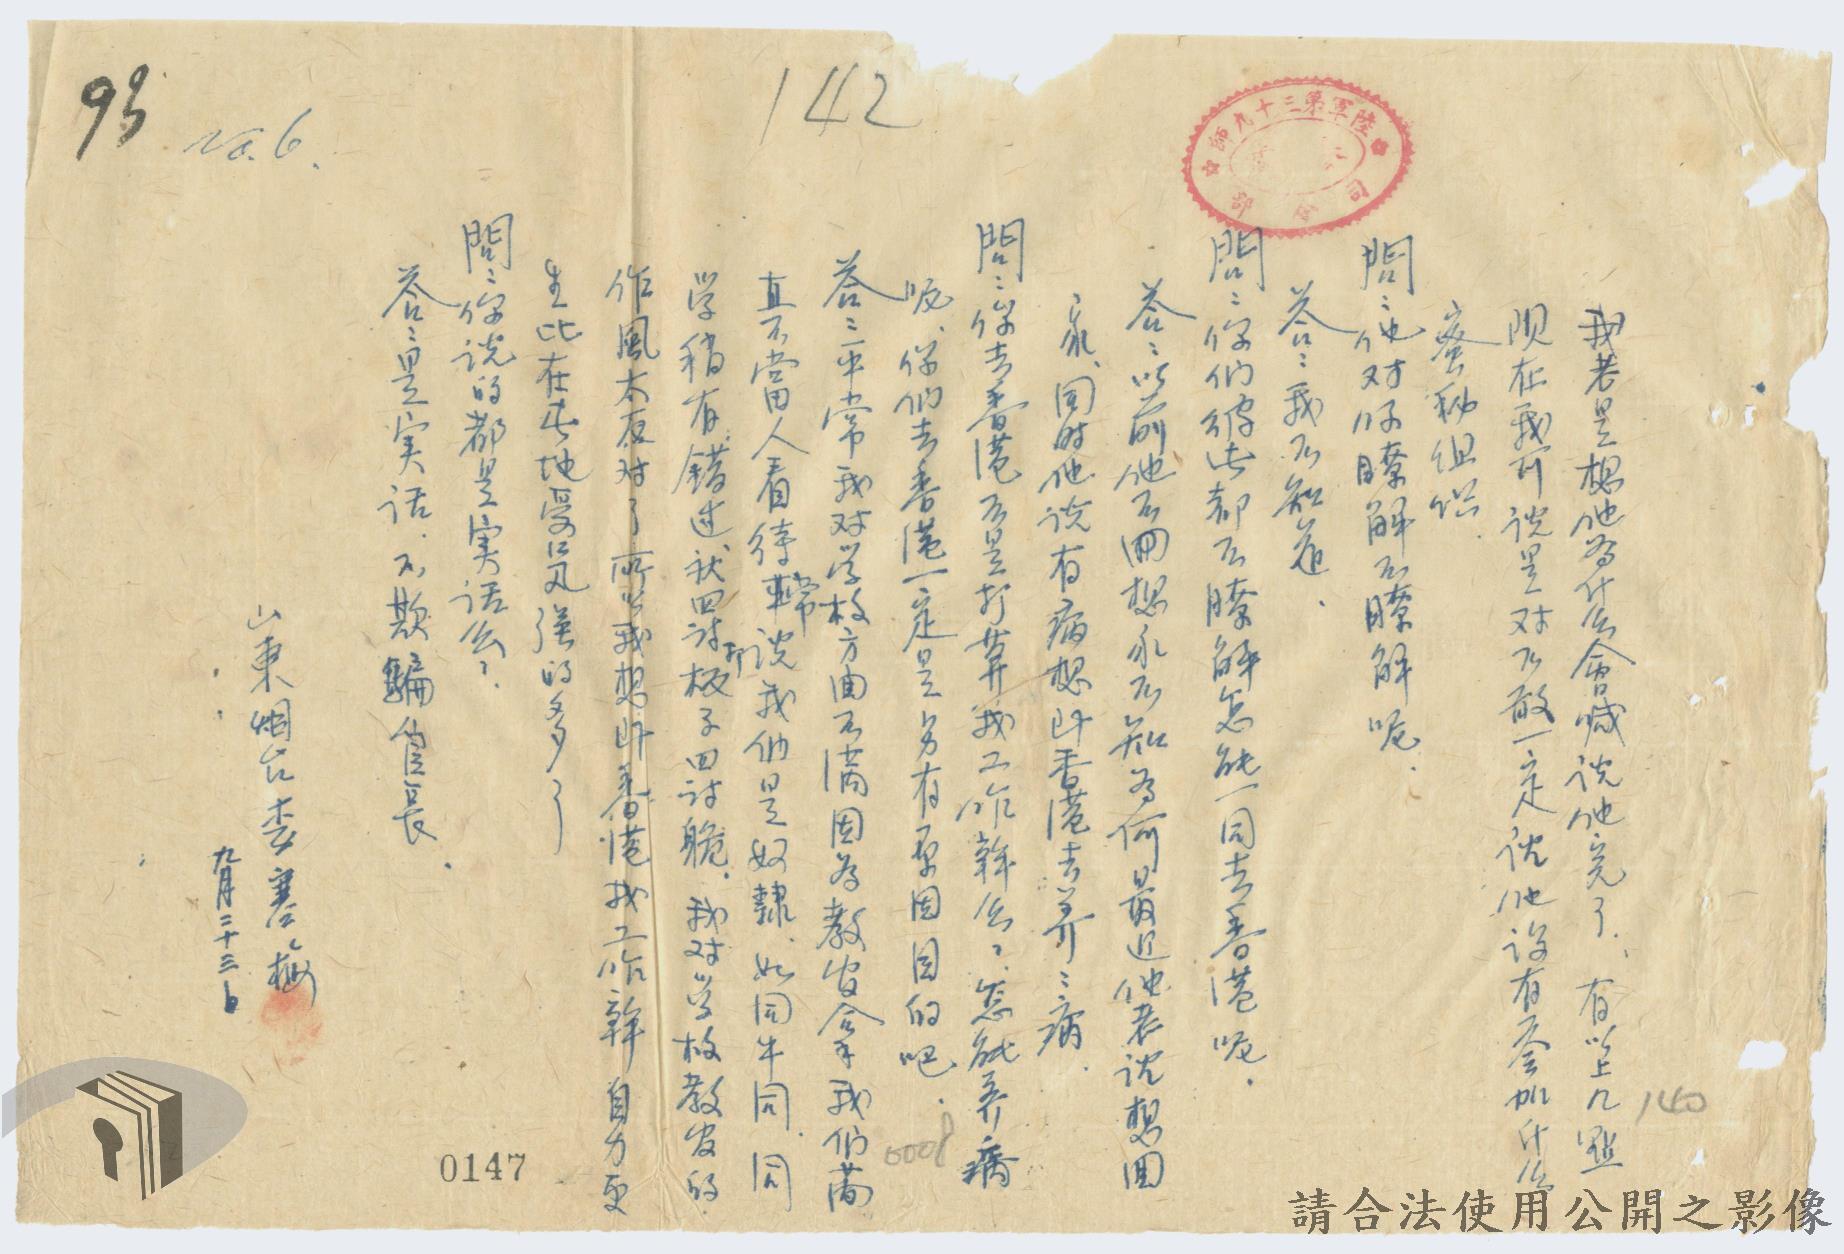 93
No. 6.
142
陸軍第三十九師
司令部
我若是想他為什么會喊說他完了、有以上几點
現在我可說是对不敢一定說他沒有参加什么
密秘組织.
問:他对你瞭解不瞭解呢.
答:我不知道.
問:你們彼此都不瞭解怎能一同去香港呢.
答:以前他不回想家不知為何最近他老說想回
家、同時他說有病想叫香港去养:病.
問:你去香港不是打算找工作幹么?怎能养病
呢、你們去香港一定是另有原因目的吧.
答:平常我对学校方面不满因為教官拿我們簡
直不當人看待常說我們是奴隸、如同牛同、同
学稍有錯过就四討打板子四討跪、我对学校教官的
作風太反对了所以我想叫香港找工作幹自力更
生比在此地受气强的多了
問:你說的都是实话么?
答:是实话、不欺騙官長.
山東烟台李騫梅
九月二十三日
140
0008
0147
請合法使用公開之影像